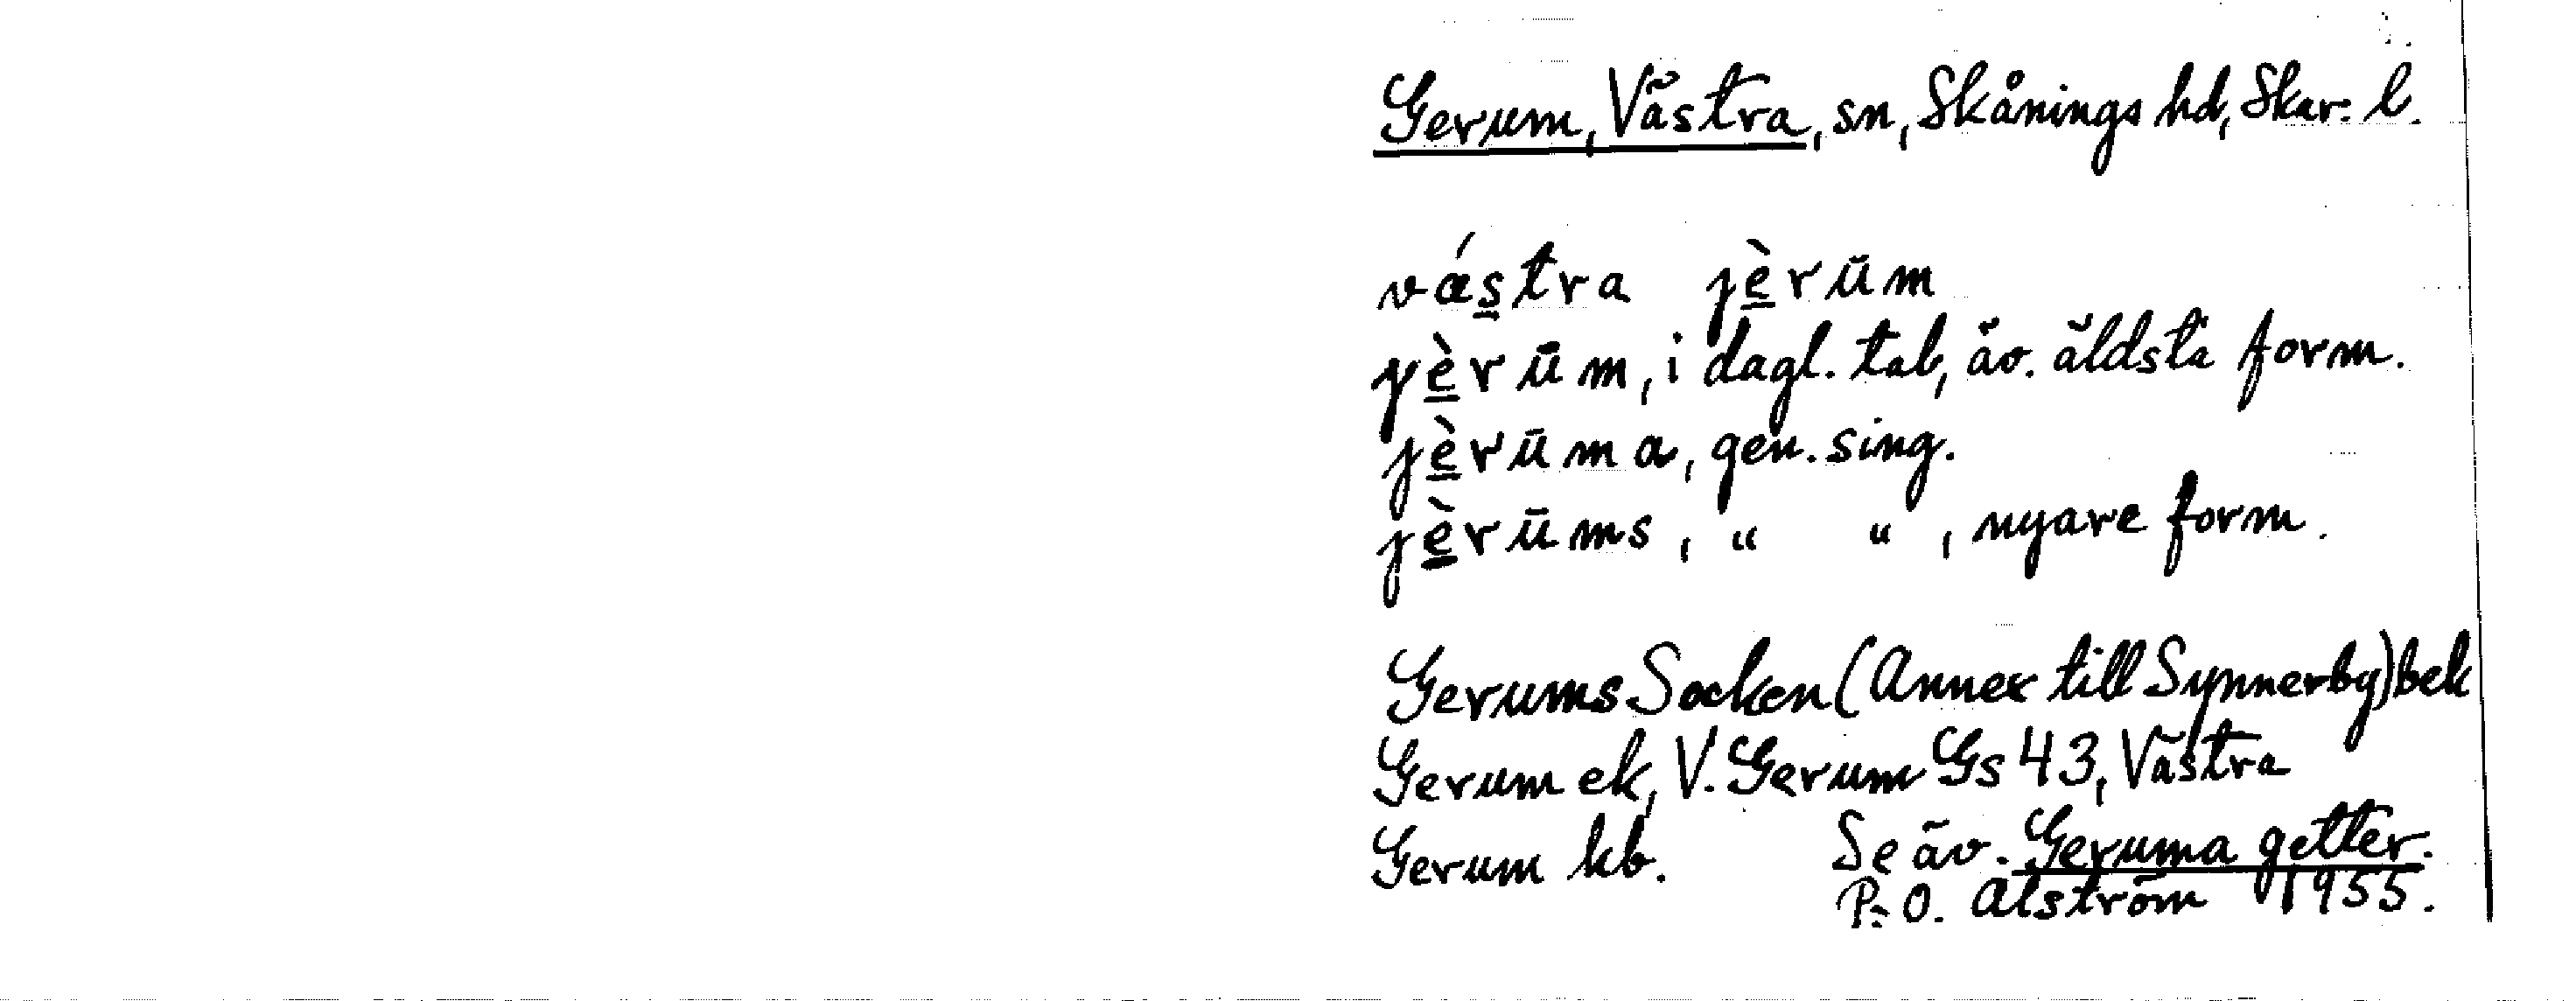 Gerum, Västra, sn, Skånings hd, Skar. l.
vǽstra jèrūm
jèrūm, i dagl. tal, äv. äldsta form.
jèrūma, gen. sing.
jèrūms, " ", nyare form.
Gerums Socken (Annex till Synnerby) bek
Gerum ek, V. Gerum Gs 43, Västra
Gerum kb. Se äv. Geruma getter.
P.-O. Alström 1955.